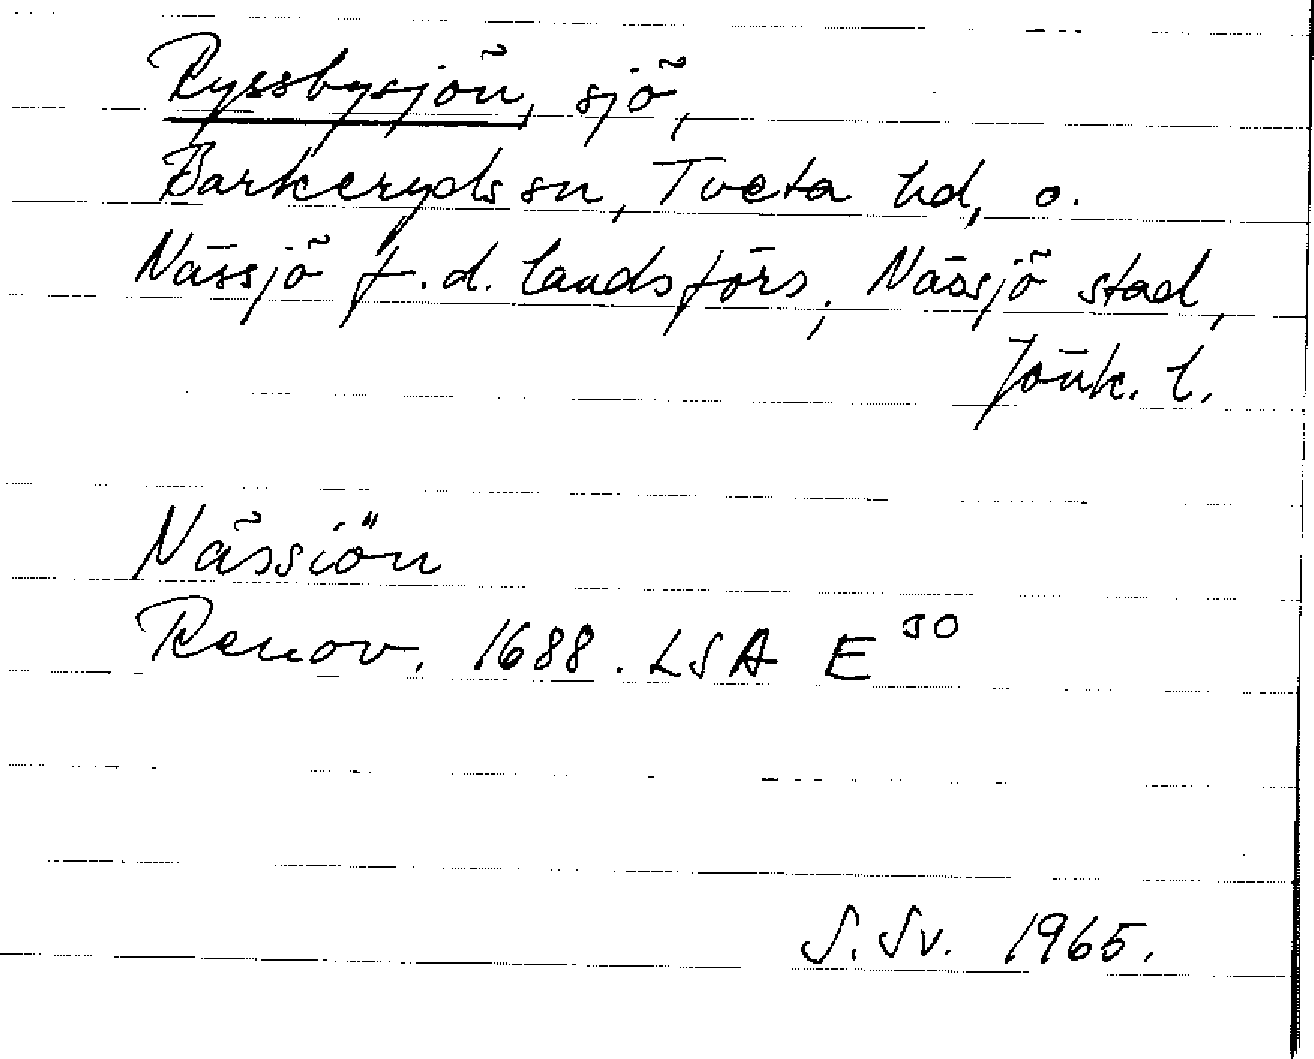 Ryssbysjön, sjö,
Barkeryds sn, Tveta hd, o.
Nässjö f.d. landsförs, Nässjö stad,
Jönk. l.
Nässiön
Renov. 1688. LSA E 30
S. Sv. 1965.